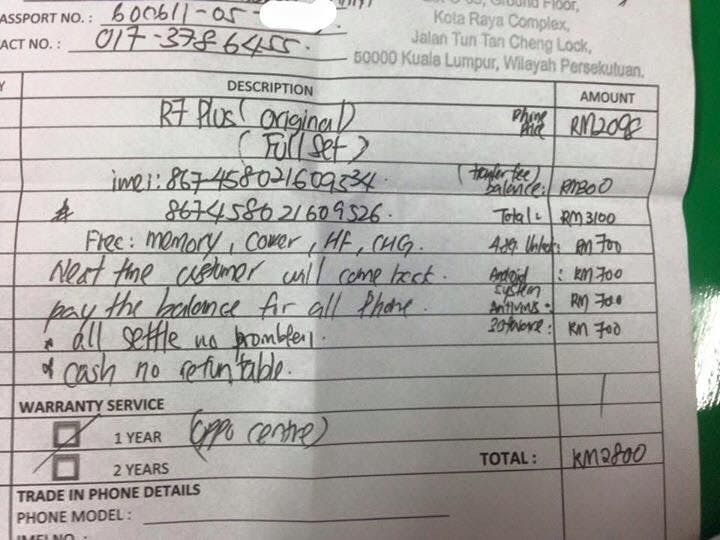 Ground Floor,
ASSPORT NO. : 600611-05-
Kota Raya Complex,
ACT NO. : 017-3786455.
Jalan Tun Tan Cheng Lock,
50000 Kuala Lumpur, Wilayah Persekutuan.
Y DESCRIPTION AMOUNT
R7 Plus (original) Phone Price RM2098
(Full Set)
imei: 867458021609534. (transfer fee) balance: RM300
867458021609526. Total: RM3100
Free: memory, Cover, HF, CHG. 4.8G Unlock: RM700
Next time customer will come back. Android system : RM700
pay the balance for all phone. Antivirus: RM700
* all settle no promblem. Software: RM700
* cash no refuntable.
WARRANTY SERVICE
1 YEAR (oppo centre)
2 YEARS
TOTAL : RM2800
TRADE IN PHONE DETAILS
PHONE MODEL :
IMEI NO. :